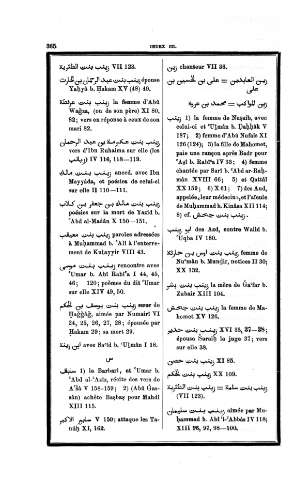 365
INDEX III.
زينب بنت الطثرية VII 123.
زينب بنت عبد الرحمان بن الحارث épouse
Yaḥyâ b. Ḥakam XV (48) 49.
زينب بنت عرفطة la femme d'Abû
Waǵza, (ou de son père) XI 80,
82; vers en réponse à ceux de son
mari 82.
زينب بنت عكرمة بن عبد الرحمان
vers d'Ibn Ruhaima sur elle (les
زيانب) IV 116, 118—119.
زينب بنت مالك, anecd. avec Ibn
Mayyâda, et poésies de celui-ci
sur elle II 110—111.
زينب بنت مالك بن جعفر بن كلاب
poésies sur la mort de Yazîd b.
'Abd al-Madân X 150—151.
زينب بنت معيقب paroles adressées
à Muḥammad b. 'Alî à l'enterre-
ment de Kuṯayyir VIII 43.
زينب بنت موسى rencontre avec
'Umar b. Abî Rabî'a I 44, 45,
46; 120; poèmes du dit 'Umar
sur elle XIV 49, 50.
زينب بنت يوسف بن الحكم sœur de
Ḥaǧǧâǧ, aimée par Numairî VI
24, 25, 26, 27, 28; épousée par
Ḥakam 29; sa mort 29.
ابن زينة avec Sa'îd b. 'Uṯmân I 18.
س
1) le Berbert, et 'Umar b.
'Abd al-'Azîz, récite des vers de
V 158—159; 2) (Abû
) achète Baṣbaṣ pour Mahdî
XIII 115.
سابور الاكبر V 150; attaque les Ta-
nûḫ XI, 162.
زين chanteur VII 36.
زين العابدين = على بن الحسين بن
على
زين المواكب = محمد بن عروة
زينب 1) la femme de Nuṣaib, avec
celui-ci et 'Uṯmân b. Ḍaḥḥâk V
187; 2) femme d'Abû Nufais XI
126 (124); 3) la fille de Mahomet,
paie une rançon après Badr pour
'Aṣ b. Rabî'a IV 33; 4) femme
chantée par Sarî b. 'Abd ar-Raḥ-
mân XVIII 66; 5) et Qattâl
XX 159; 6) X 61; 7) des Aud,
appelée, leur médecin, et l'aïeule
de Muḥammad b. Kunâsa XII 114;
8) cf. زينب بنت جحش.
ابو زينب des Aud, contre Walîd b.
'Uqba IV 180.
زينب بنت اوس بن حارثة femme de
Nu'mân b. Munḏir, notices II 30;
XX 132.
زينب بنت بشر la mère de Ǵa'far b.
Zubair XIII 104.
زينب بنت جحش la femme de Ma-
homet XV 126.
زينب بنت حدير XVI 35, 37—38;
épouse Šuraiḥ le juge 37; vers
sur elle 38.
زينب بنت حصن XI 85.
زينب بنت الحكم XX 109.
زينب بنت سلمة = زينب بنت الطثرية
(VII 123).
زينب بنت سليمان, aimée par Mu-
ḥammad b. Abî 'l-'Abbâs IV 118;
XIII 96, 92, 98—100.